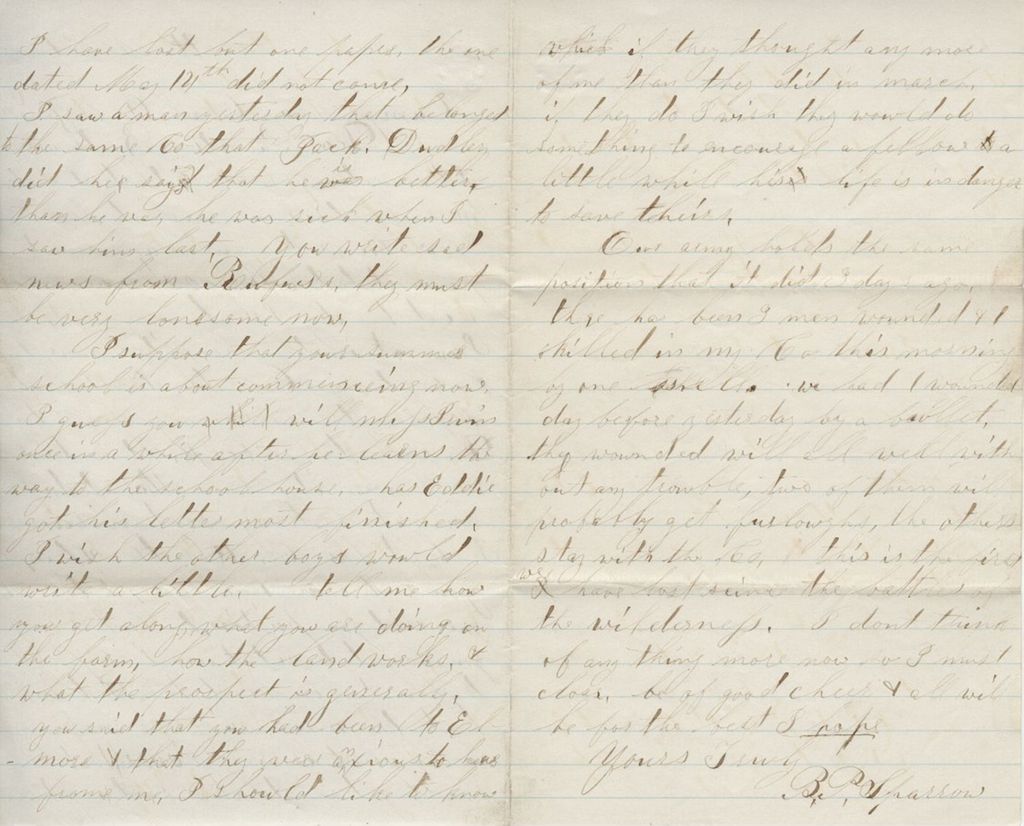 I have lost but one paper, the one
dated May 19th did not come,
I saw a man yesterday that belonged
to the same Co that Jack. Dudley
did he said that he was better,
than he was, he was sick when I
saw him last. You write sad
news from they must
be very lonesome now,
I suppose that your summer
school is about commenceing now,
I guess you will miss
once in a while after he learns the
way to the school house. has Eddie
got his letter most finished.
I wish the other boys would
write a little. tell me how
you get along, what you are doing on
the farm, how the land works, &
what the prospect is generally.
you said that you had been to El-
more & that they were anxious to hear
frome me, I should like to know
which if they thought any more
of me than they did in march,
if they do I wish they would do
something to encourage a fellow a
little while his life is in danger
to save theirs.
Our army holds the same
position that it did days ago,
there has been 3 men wounded & 1
killed in my Co this morning
by one shell. we had 1 wounded
day before yesterday by a bullet,
they wounded will all well with
out any trouble, two of them will
probably get furloughs, the others
stay with the Co, this is the first
we have lost since the battles of
the wilderness. I dont think
of any thing more now so I must
close, be of good cheer & all will
be for the best I hope
Yours Truly
B. P. Sparrow